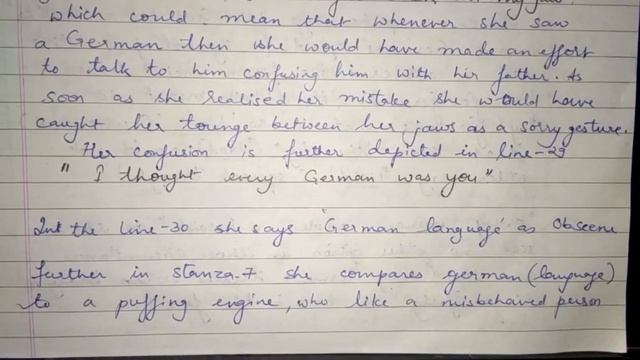 my jaw
which could mean that whenever she saw
a German then she would have made an effort
to talk to him confusing him with his father. As
soon as she realised her mistake she would have
caught her tounge between her jaws as a sorry gesture.
Her confusion is further depicted in line-29
" I thought every German was you"
the line-30 she says 'German language' as obscene
further in stanza-7 she compares german (language)
to a puffing engine, who like a misbehaved person